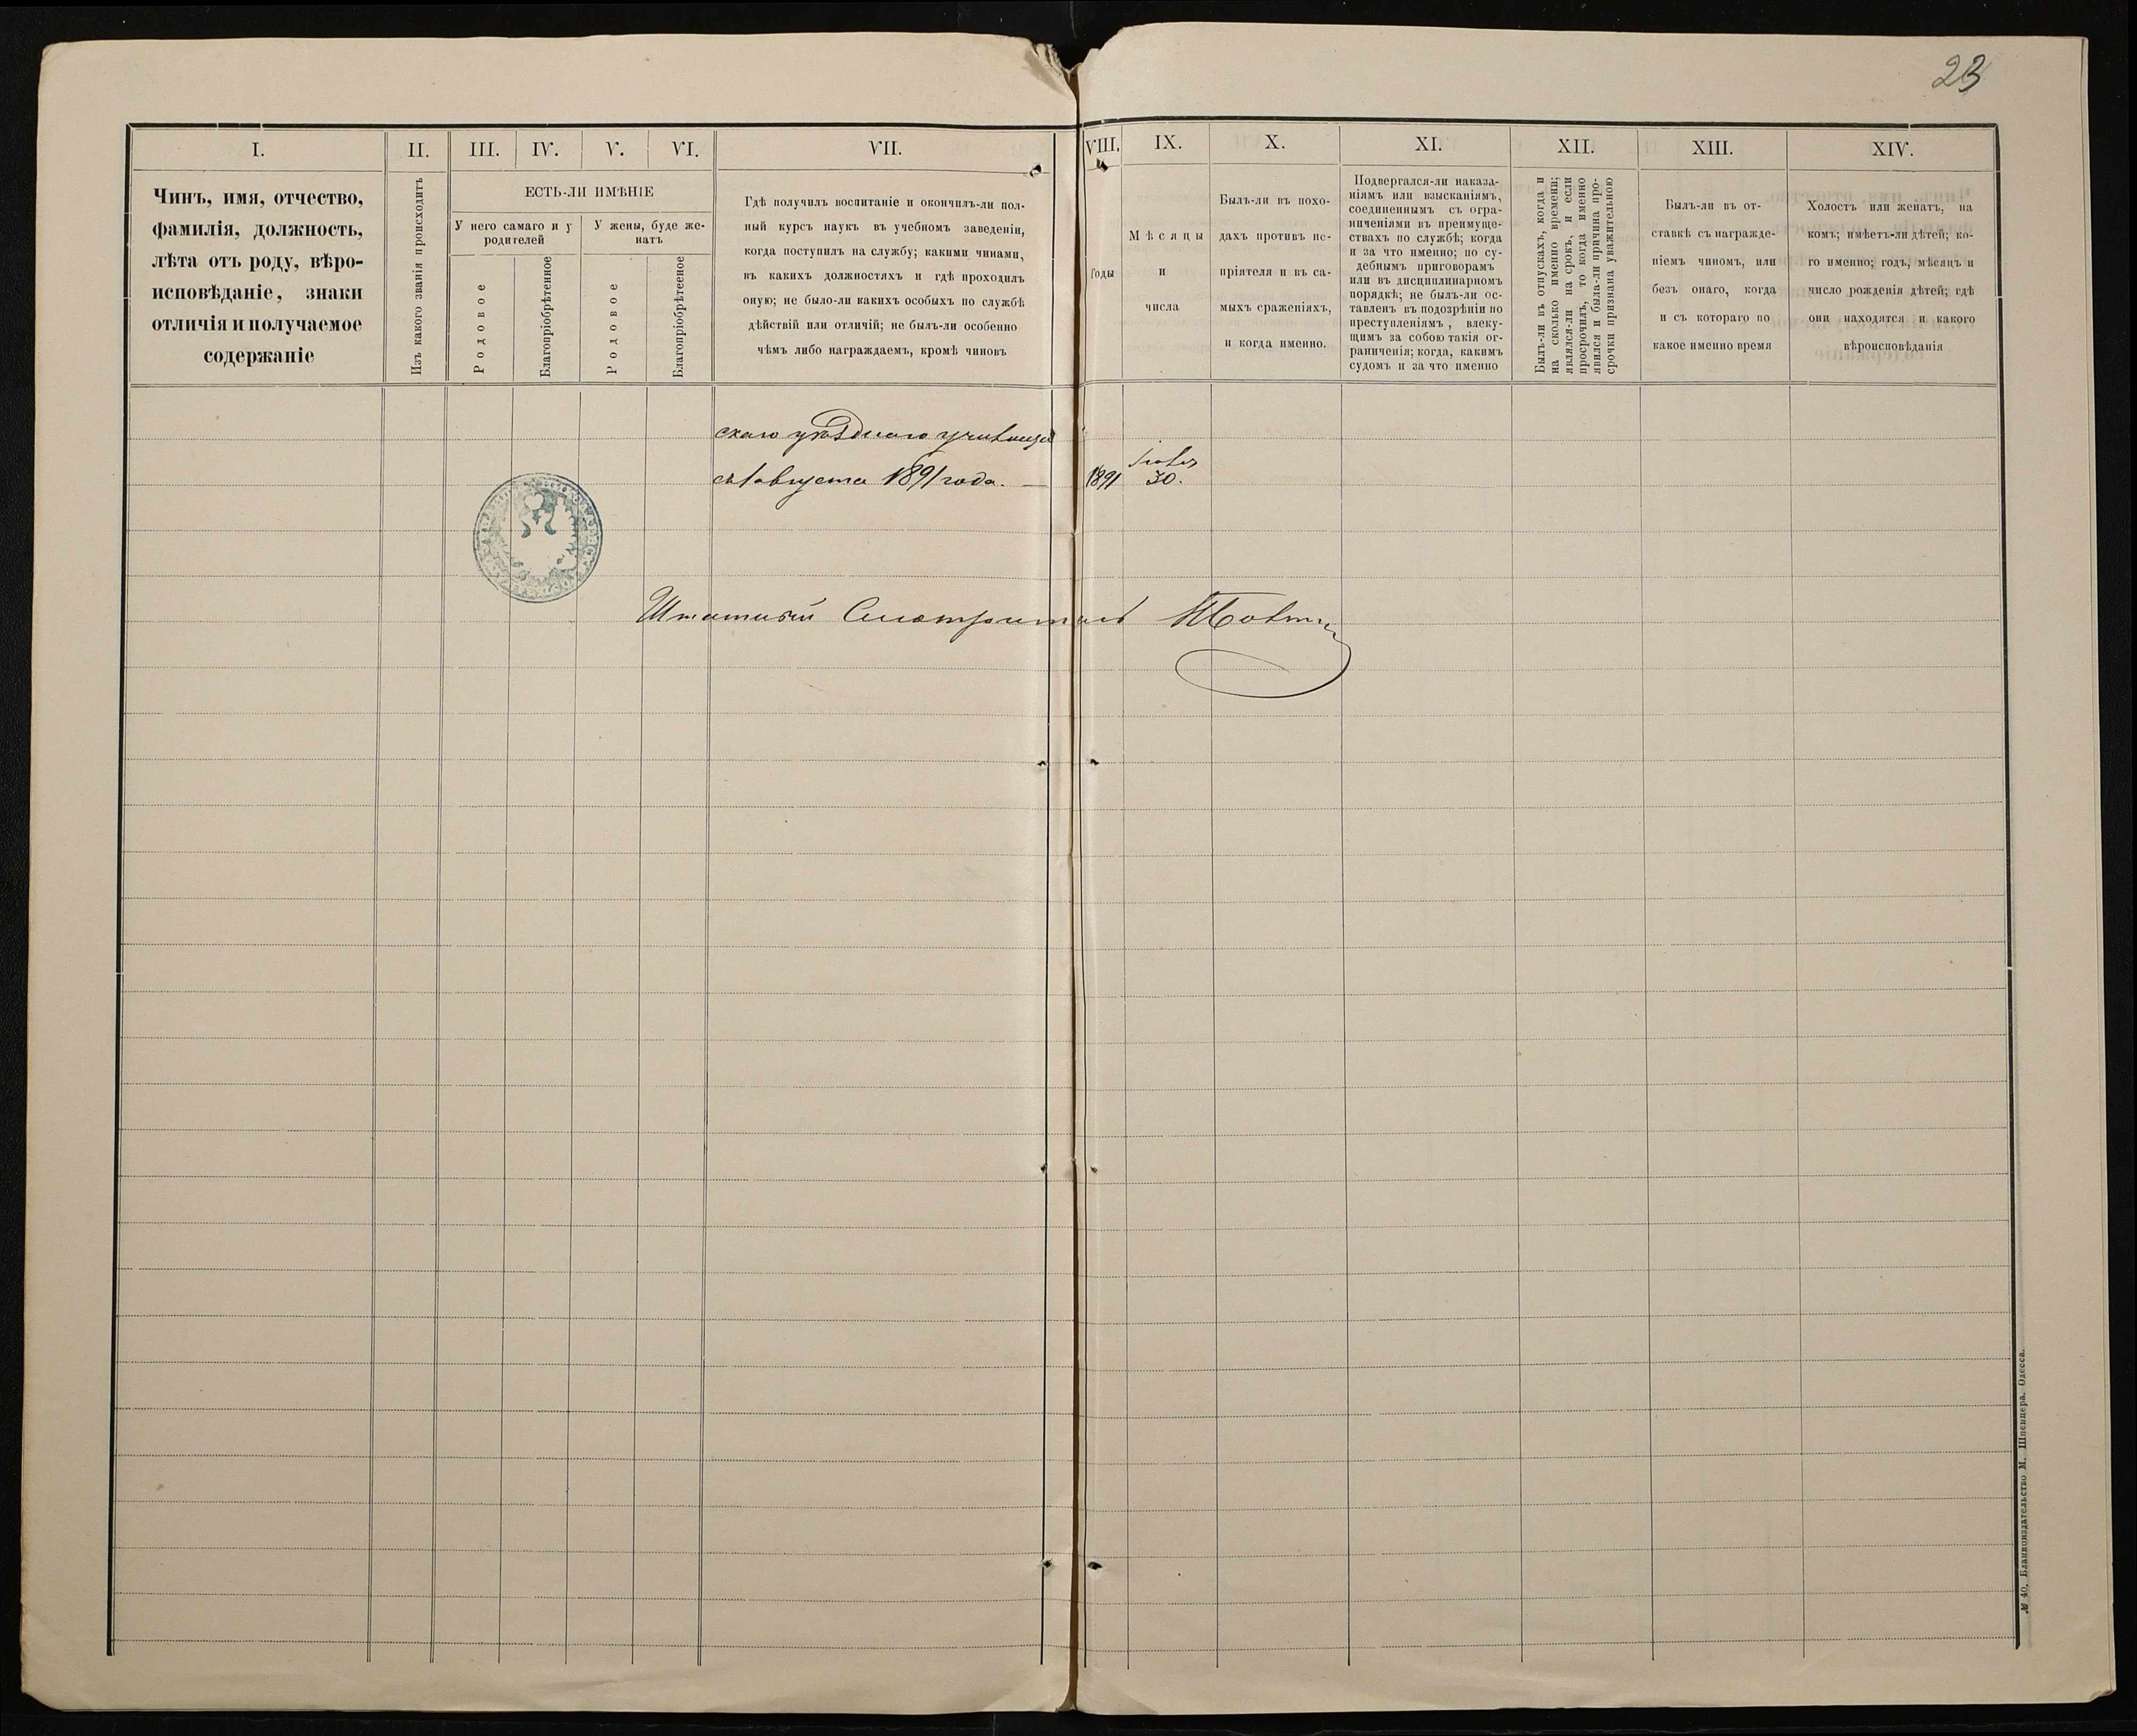 23
I.
II.
III.
IV.
V.
VI.
VII.
VIII.
IX.
X.
XI.
XII.
XIII.
XIV.
Чинъ, имя, отчество,
фамилія, должность,
лѣта отъ роду, вѣро-
исповѣданіе, знаки
отличія и получаемое
содержаніе
Изъ какого званія происходитъ
ЕСТЬ-ЛИ ИМѢНІЕ
У него самаго и у
родителей
У жены, буде же-
натъ
Родовое
Благопріобрѣтенное
Родовое
Благопріобрѣтенное
Гдѣ получилъ воспитаніе и окончилъ-ли пол-
ный курсъ наукъ въ учебномъ заведеніи,
когда поступилъ на службу; какими чинами,
въ какихъ должностяхъ и гдѣ проходилъ
оную; не было-ли какихъ особыхъ по службѣ
дѣйствій или отличій; не былъ-ли особенно
чѣмъ либо награждаемъ, кромѣ чиновъ
Годы
Мѣсяцы
и
числа
Былъ-ли въ похо-
дахъ противъ не-
пріятеля и въ са-
мыхъ сраженіяхъ,
и когда именно.
Подвергался-ли наказа-
ніямъ или взысканіямъ,
соединеннымъ съ огра-
ниченіями въ преимуще-
ствахъ по службѣ; когда
и за что именно; по су-
дебнымъ приговорамъ
или въ дисциплинарномъ
порядкѣ; не былъ-ли ос-
тавленъ въ подозрѣніи по
преступленіямъ, влеку-
щимъ за собою такія ог-
раниченія; когда, какимъ
судомъ и за что именно
Былъ-ли въ отпускахъ, когда и
на сколько именно времени;
являлся-ли на срокъ, и если
просрочилъ, то когда именно
явился и была-ли причина про-
срочки признана уважительною
Былъ-ли въ от-
ставкѣ съ награжде-
ніемъ чиномъ, или
безъ онаго, когда
и съ котораго по
какое именно время
Холостъ или женатъ, на
комъ; имѣетъ-ли дѣтей; ко-
го именно; годъ, мѣсяцъ и
число рожденія дѣтей; гдѣ
они находятся и какого
вѣроисповѣданія
скаго уѣзднаго училища
съ 1 августа 1891 года. —
1891
іюля
30.
Штатный Смотритель
№ 40. Бланкоиздательство М. Шпенцера. Одесса.